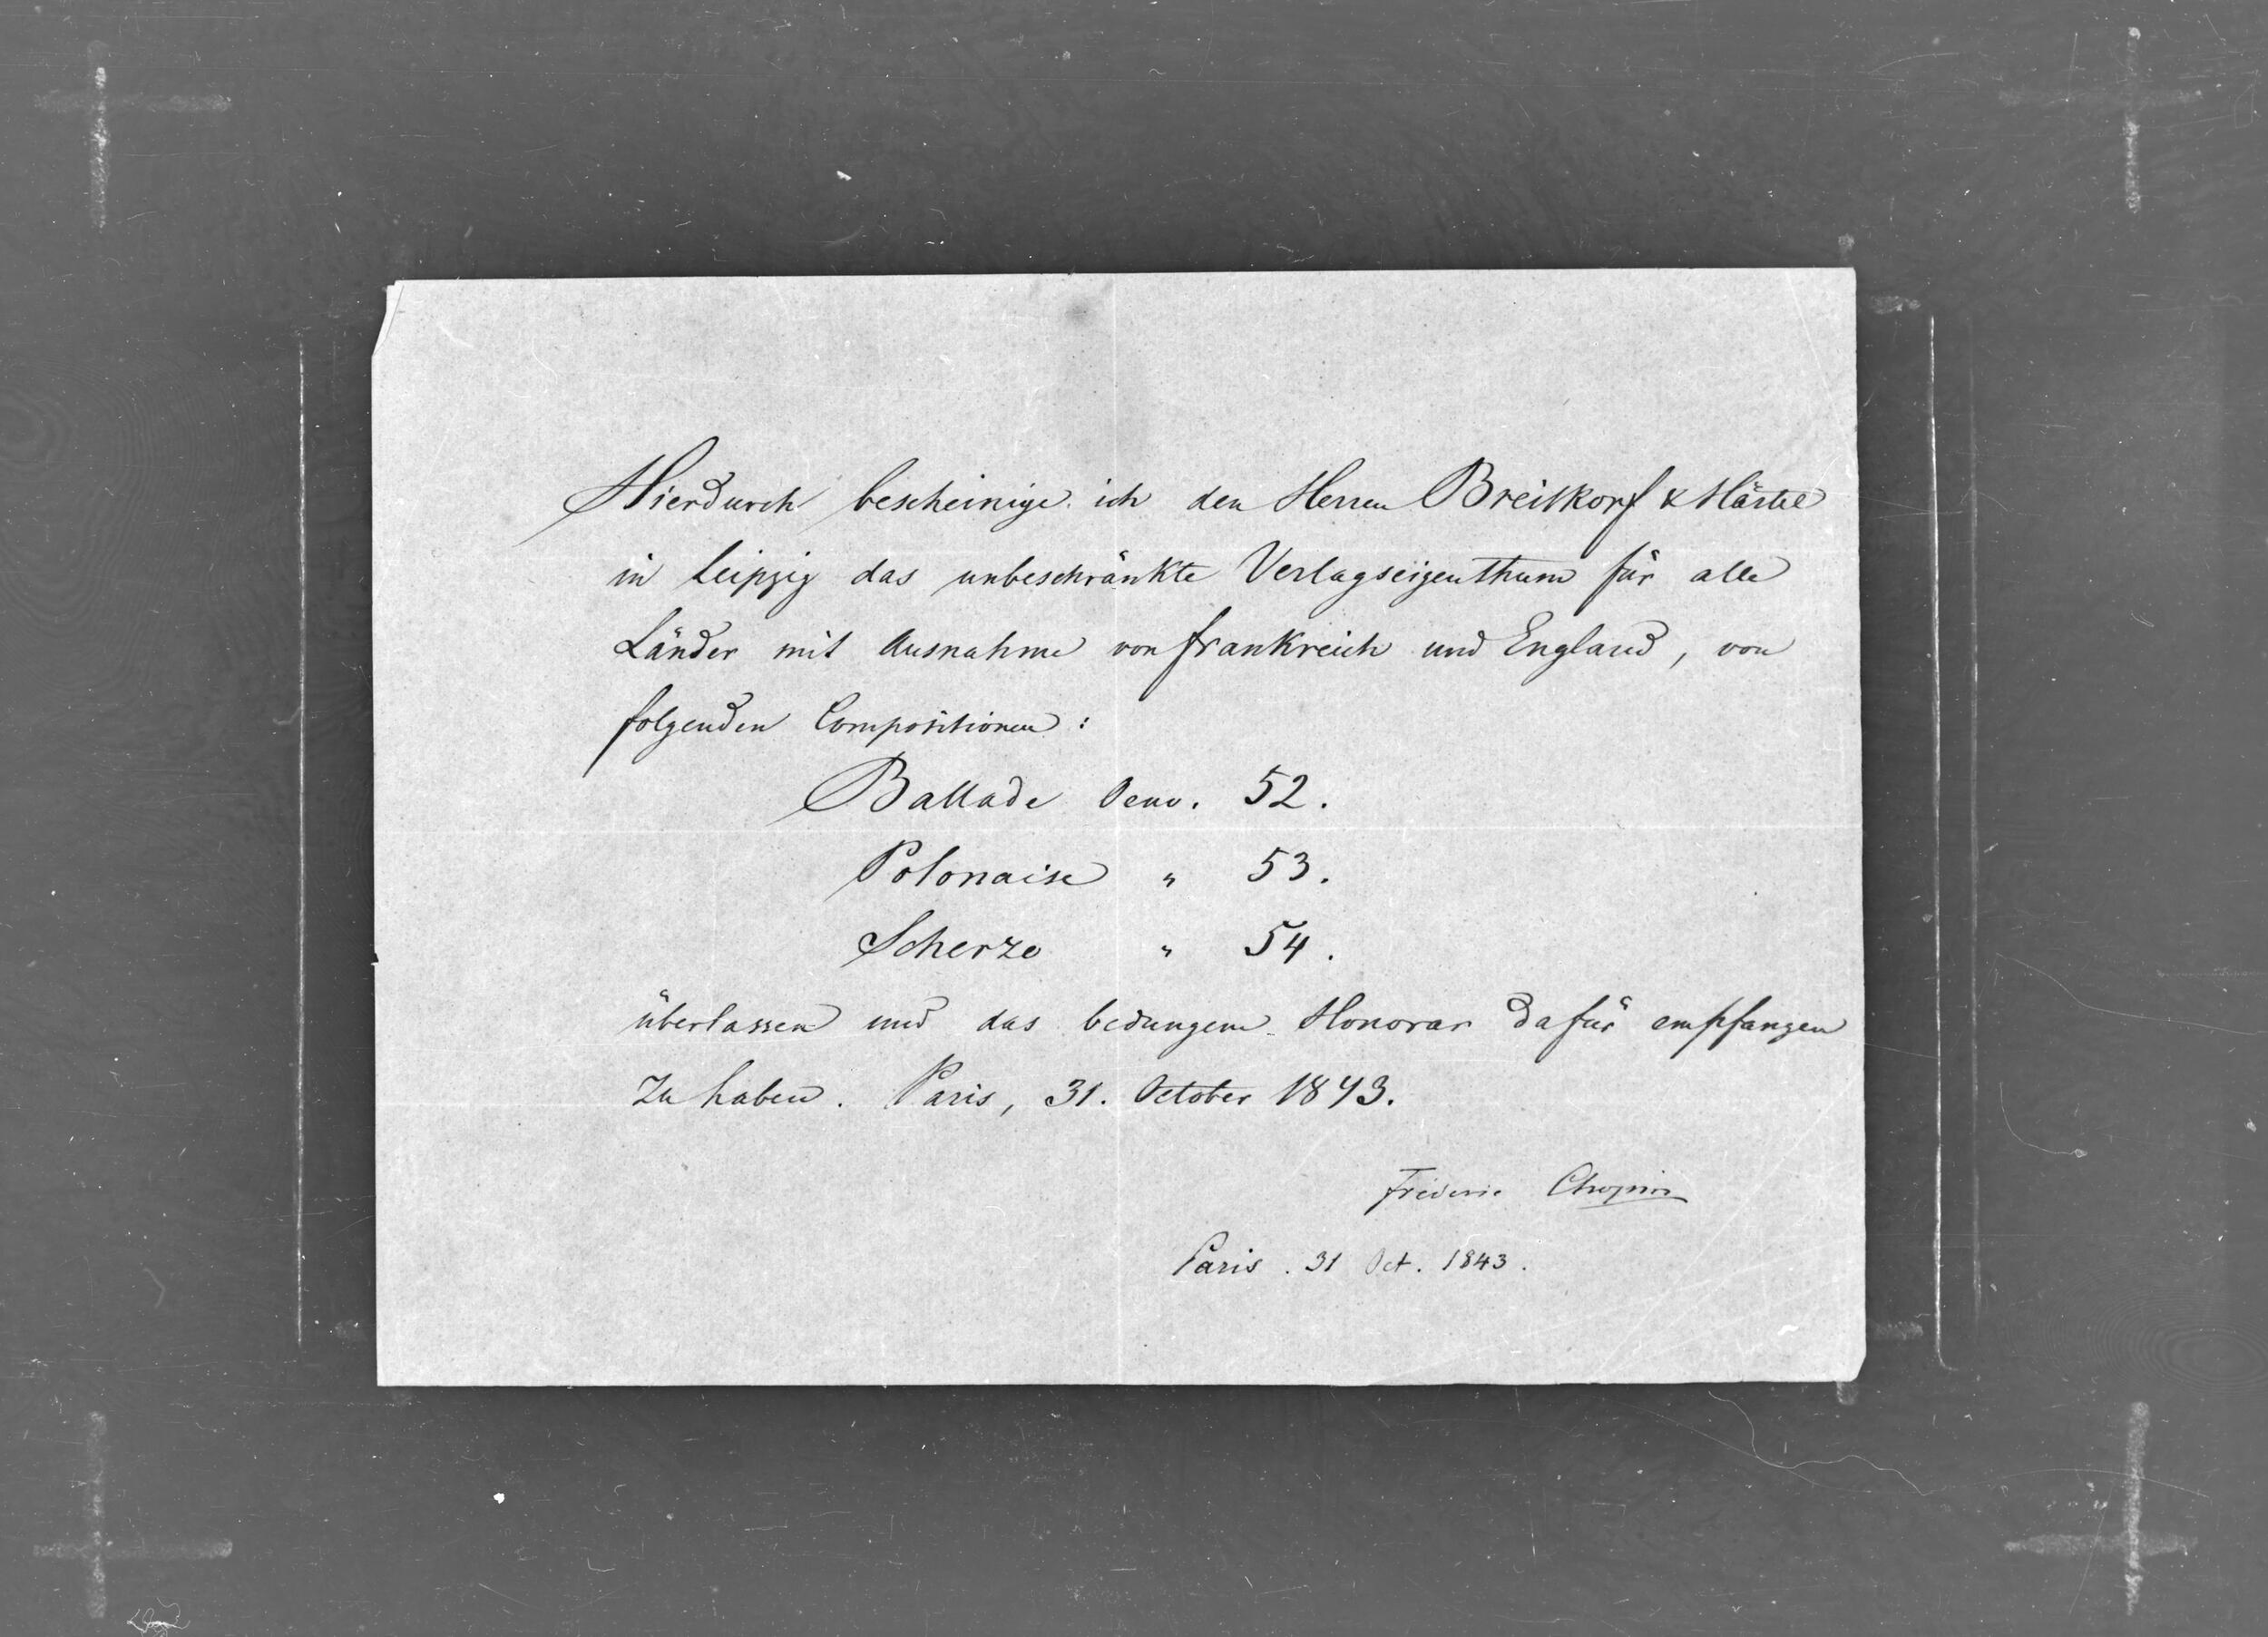 Hierdurch bescheinige ich den Herren Breitkopf & Härtel
in Leipzig das unbeschränkte Verlagseigenthum für alle
Länder mit Ausnahme von Frankreich und England, von
folgenden Compositionen:
Ballade Oeuv. 52.
Polonaise " 53.
Scherzo " 54.
überlassen und das bedungene Honorar dafür empfangen
zu haben. Paris, 31. October 1843.
Frédéric Chopin
Paris. 31 Oct. 1843.